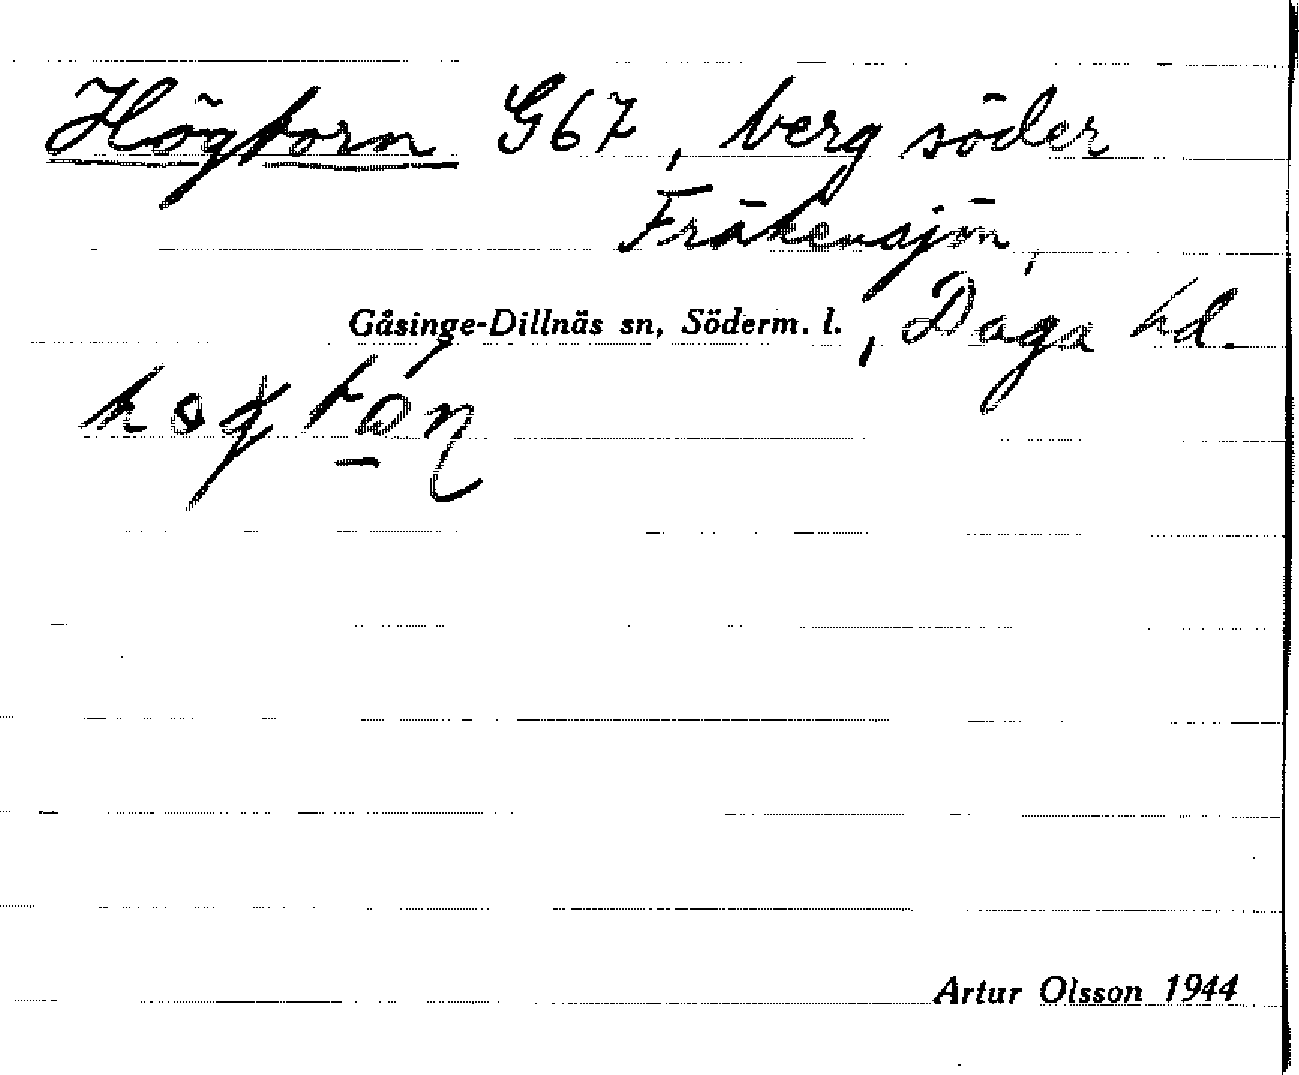 Högtorn G67, berg söder
Fräkensjön,
Gåsinge-Dillnäs sn, Söderm. l., Daga hd.
Artur Olsson 1944